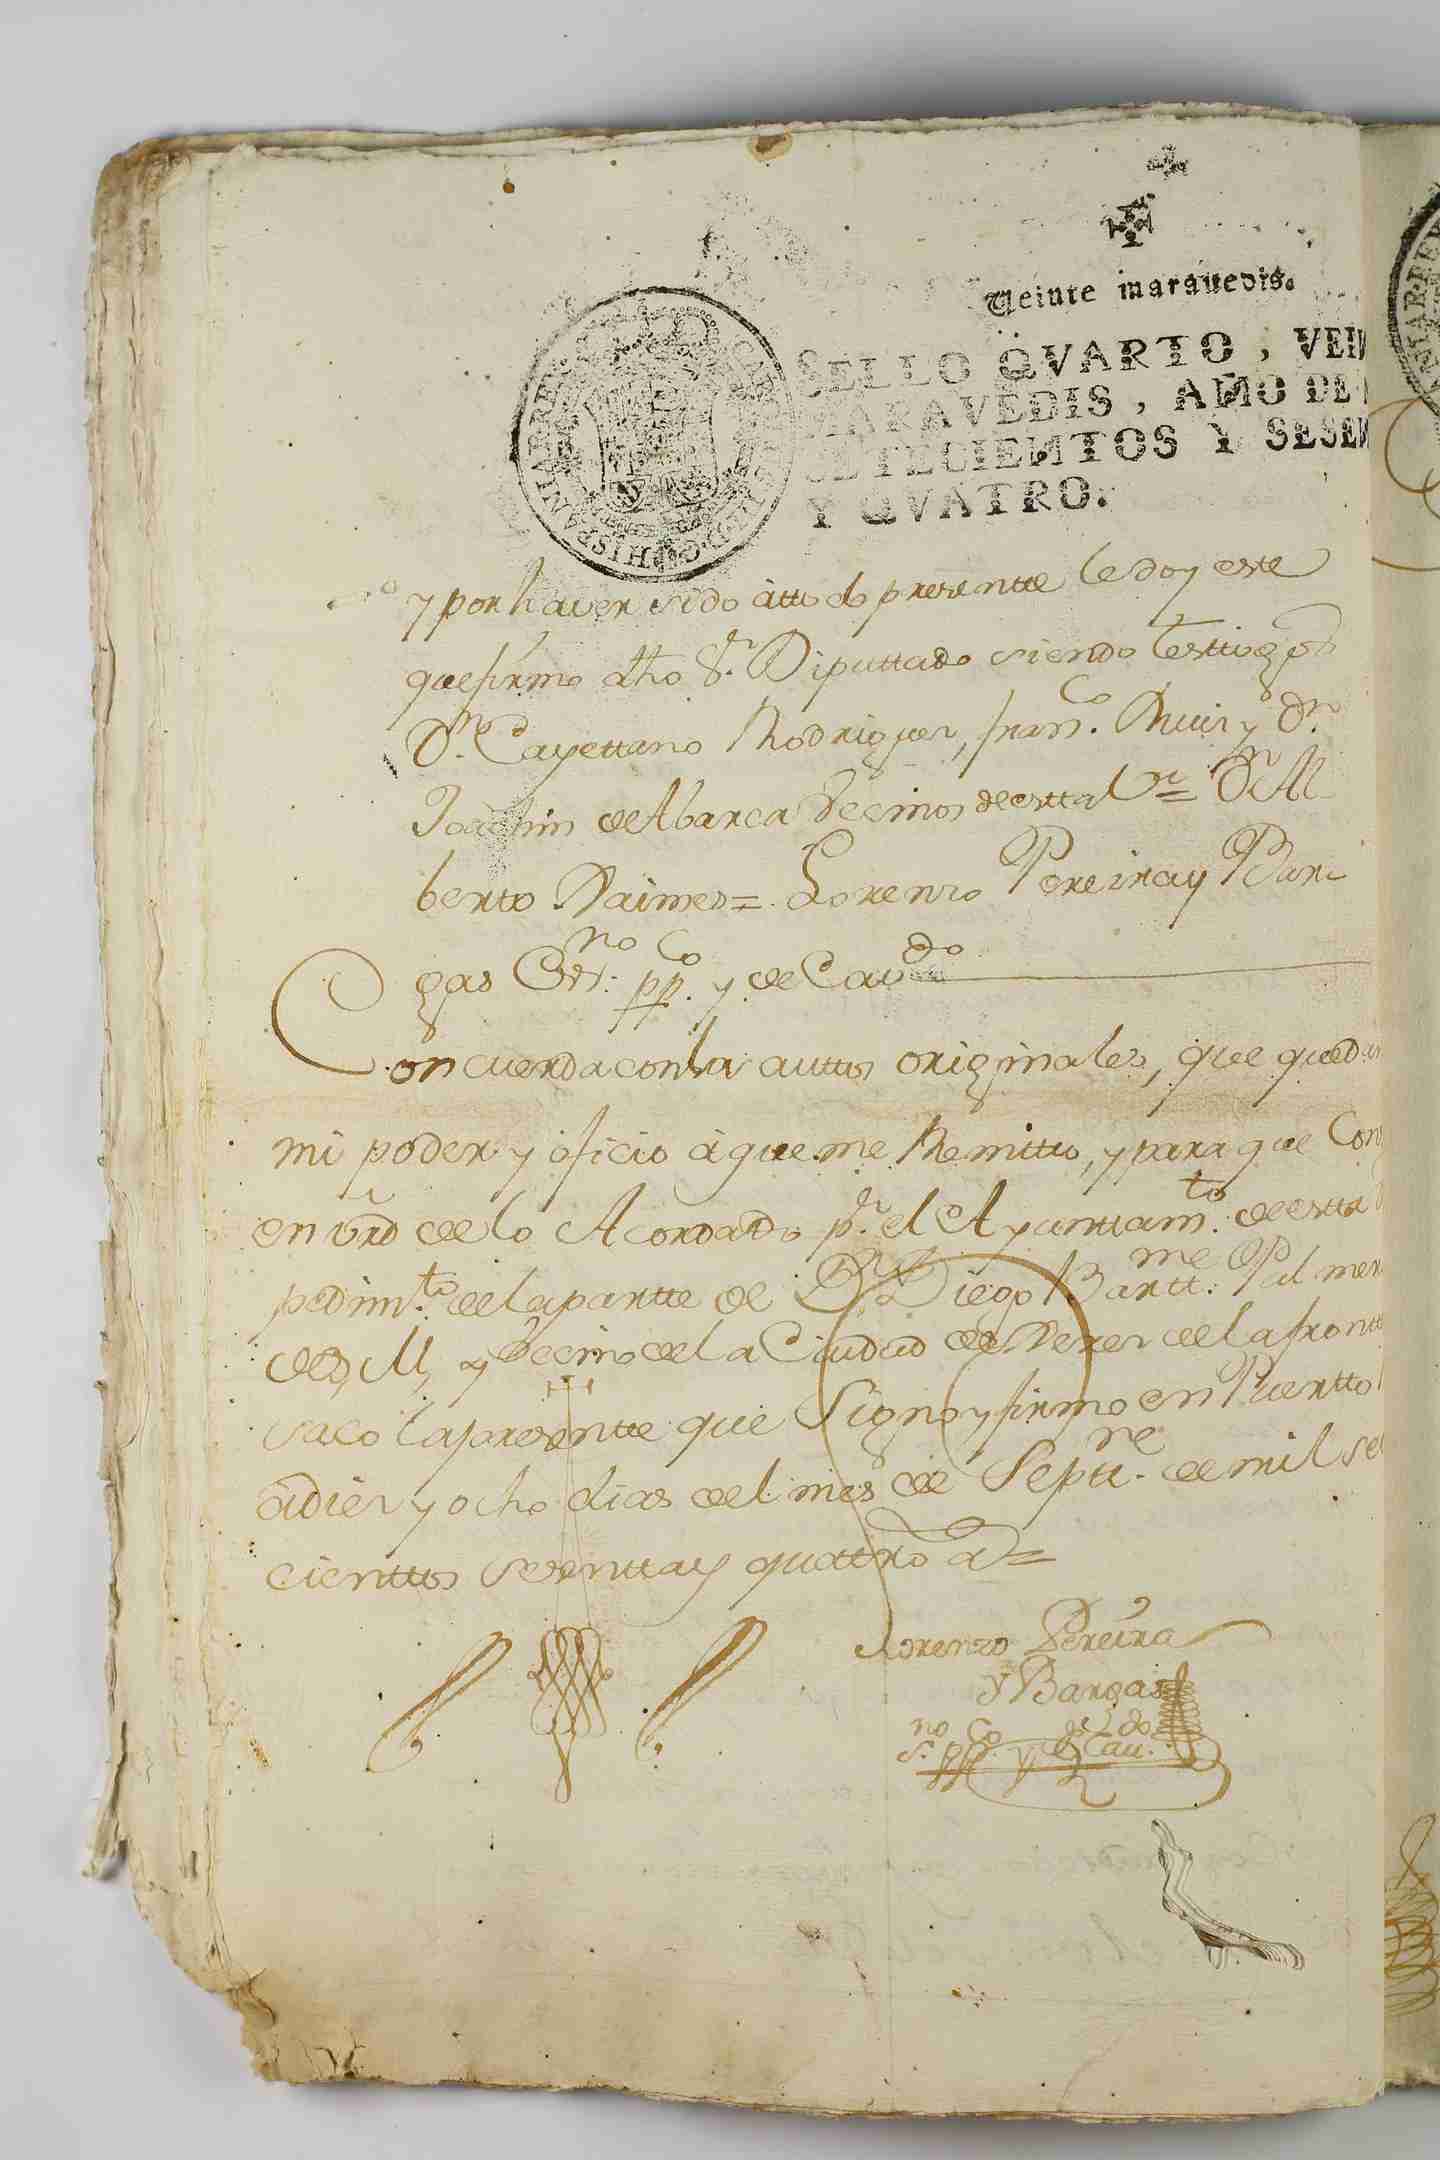 Veinte maravedis.
SELLO QVARTO, VEIN
MARAVEDIS, AÑO DE
SETECIENTOS Y SESEN
Y QVATRO.
y por haver sido a tto do presentte le doy este
que firmo dho Sr. Diputtado siendo testtigos
Dn. Cayettano Rodriguez, Franco. Ruiz y Dn.
Joachin de Abarca Vecinos de estta Va = Dn Al
berto Jaimes = Lorenzo Pereira y Bar-
gas Essno. ppco. y de Cavdo
Concuerda con los auttos originales, que quedan
mi poder y oficio á que me Remitto, y para que Con
en vrd de lo Acordado pr. el Ayunttamto. de estta
pedimto. de la partte de Dn. Diego Barttme. Palmer
de S, M, y Vecino de la Ciudad de Xerez de la frontte
saco la presentte que Signo y firmo en Puertto
á diez y ocho dias del mes de Septtre. de mil se
cienttos sesentta y quattro as =
Lorenzo Pereira
y Bargas
sno. ppco. y de Cavdo.